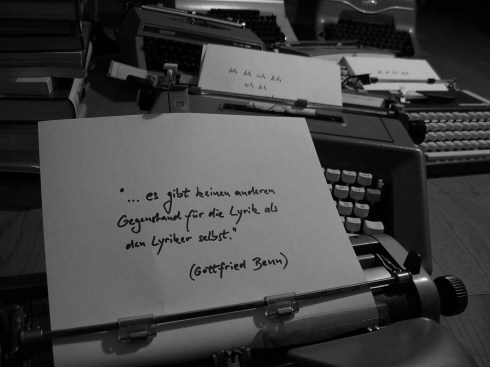 "... es gibt keinen anderen
Gegenstand für die Lyrik als
den Lyriker selbst."
(Gottfried Benn)